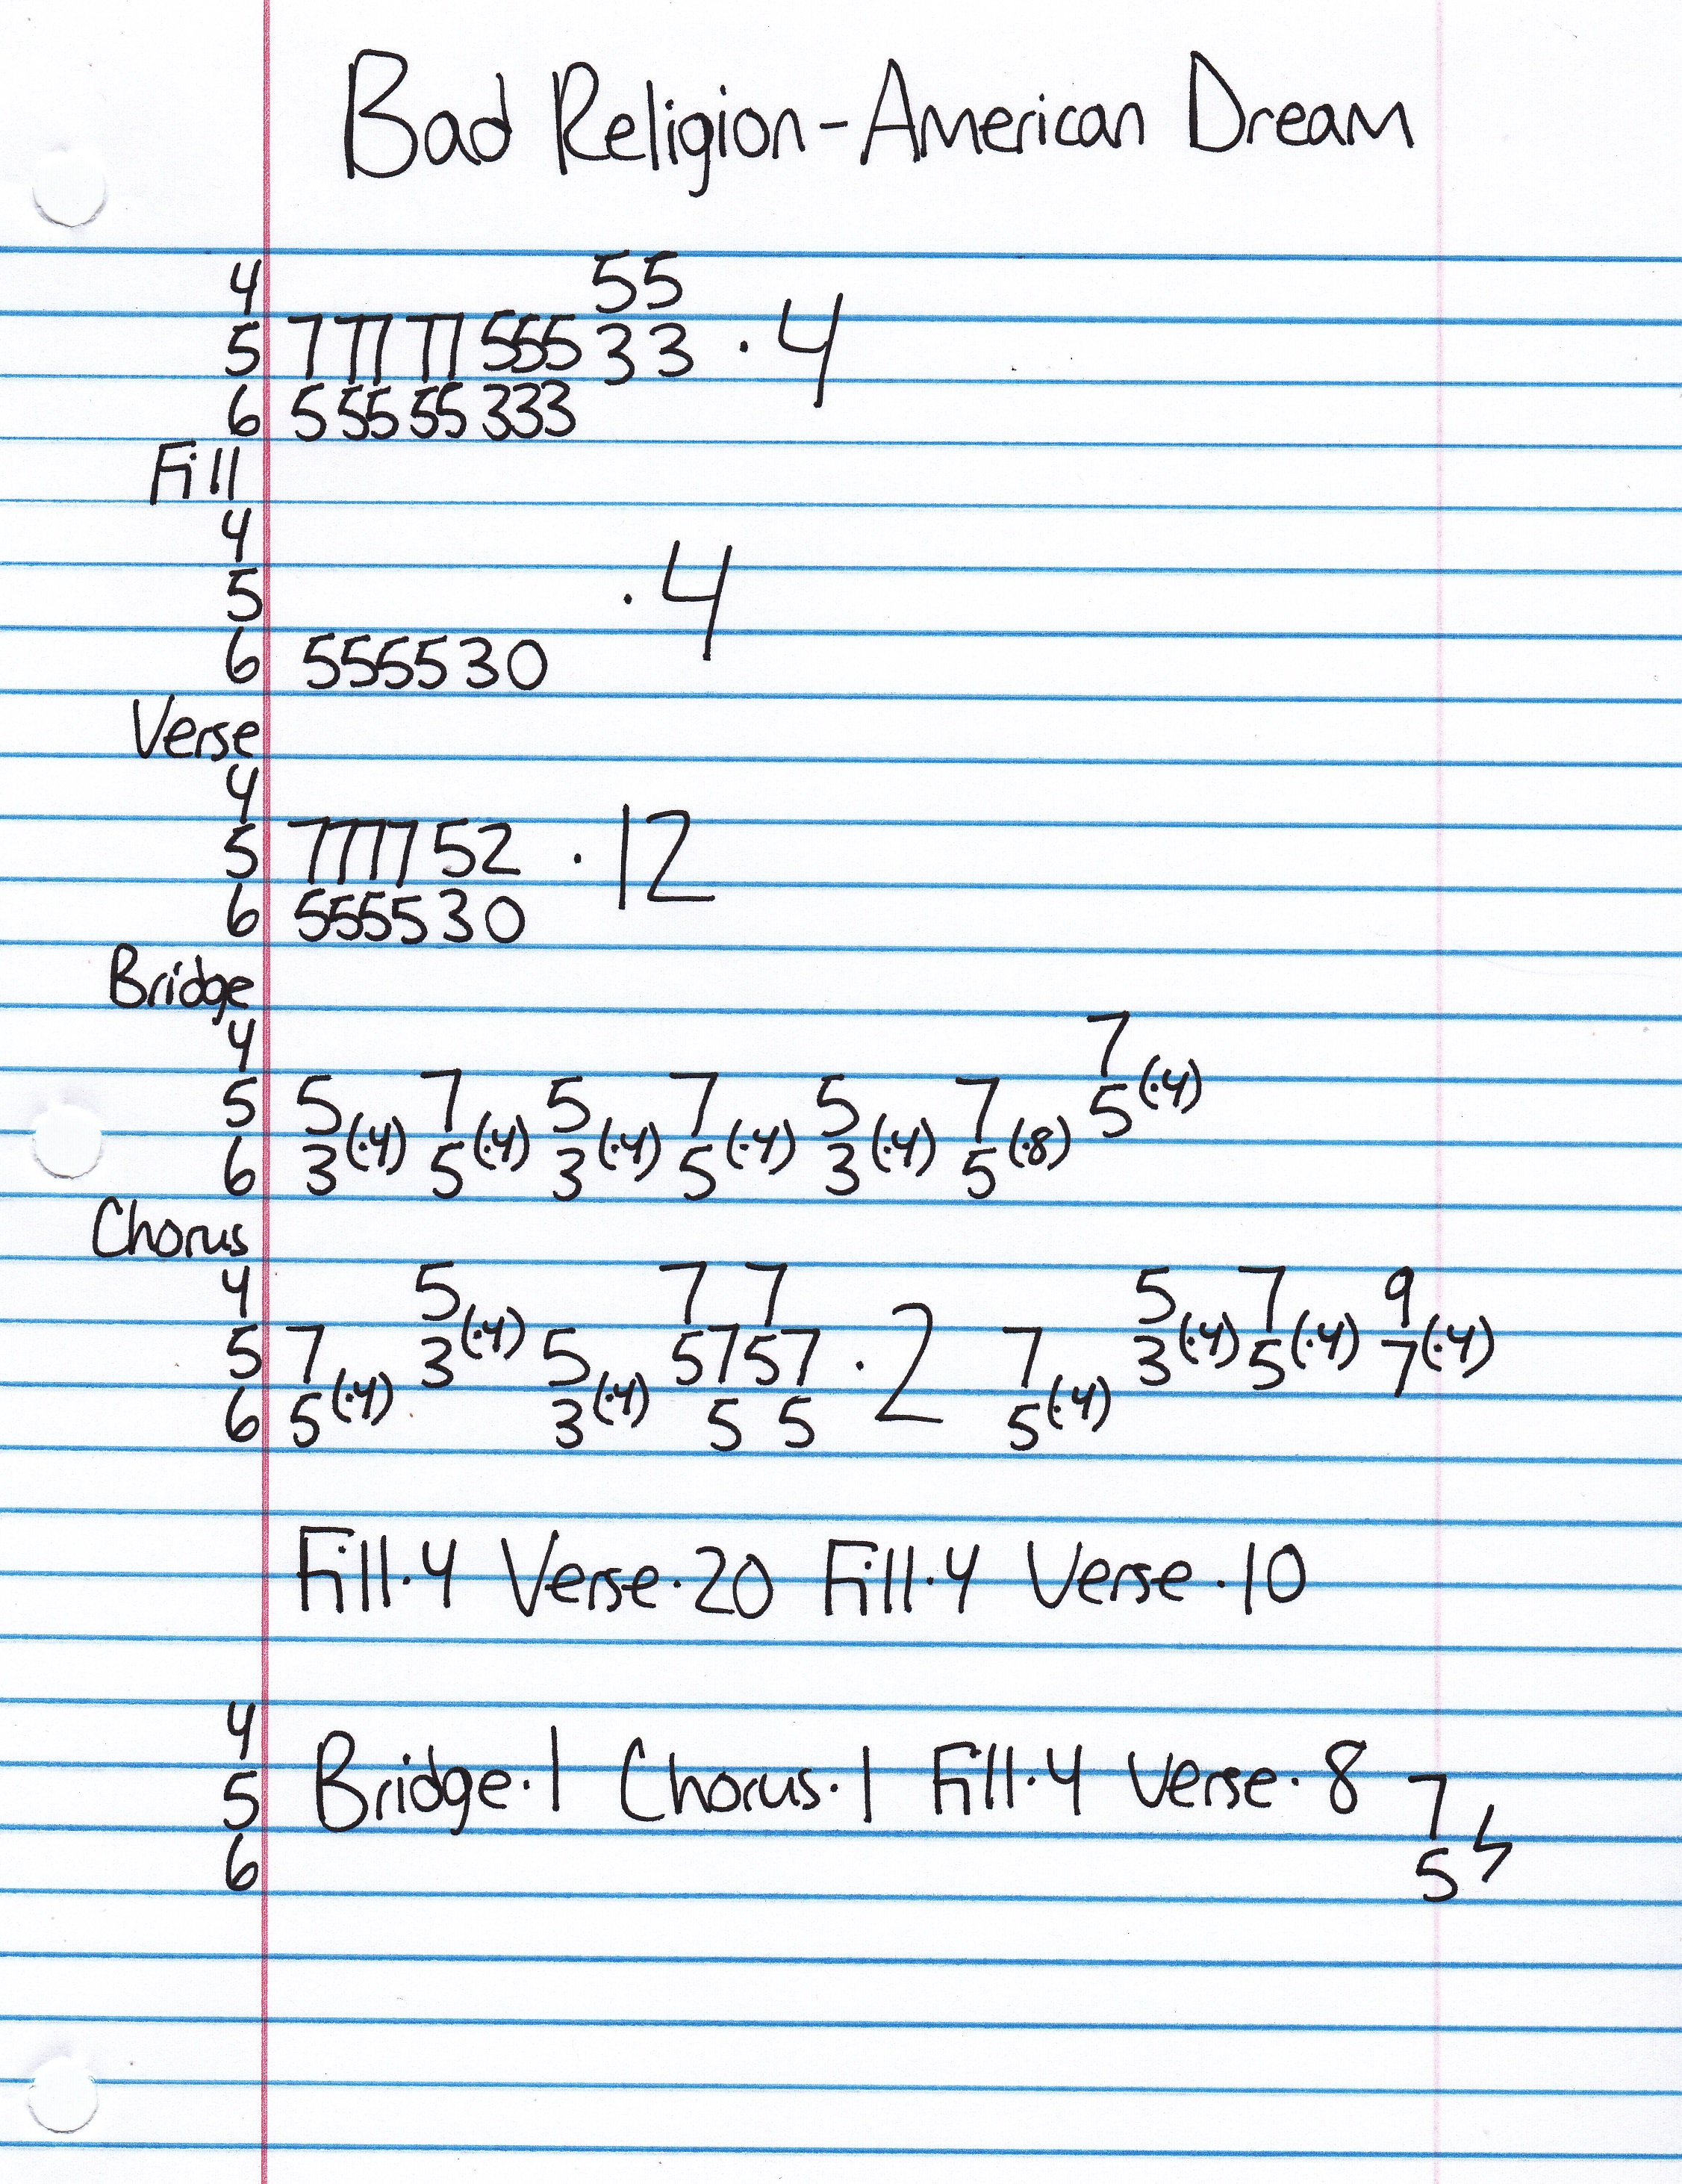 Bad Religion-American Dream
4 55
5 7 77 77 555 33 ·4
6 5 55 55 333
Fill
4
5 ·4
6 555530
Verse
4
5 7777 52 ·12
6 5555 30
Bridge
4 7
5 5 7 5 7 5 7 5(·4)
6 3(·4) 5(·4) 3(·4) 5(·4) 3(·4) 5(·8)
Chorus
4 5 7 7 5 7 9
5 7 3(·4) 5 5757 ·2 7 3(·4) 5(·4) 7(·4)
6 5(·4) 3(·4) 5 5 5(·4)
Fill·4 Verse·20 Fill·4 Verse·10
4
5 Bridge·1 Chorus·1 Fill·4 Verse·8 7
6 5